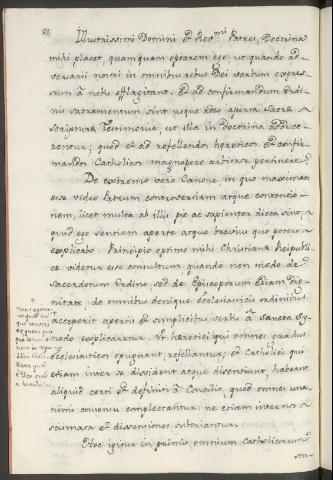 82
Illustrissimi Domini et Rev.mi Patres, Doctrina
mihi placet, quamquam optarem ego, ut quando ad-
versarii nostri in omnibus rebus Dei verbum expres-
sum à nobis efflagitant. Et ad confirmandum Ordi-
nis sacramentum sint usque adeo aperta Sacræ
Scripturæ Testimonia, ut illa in doctrina adduce-
rentur; quod et ad refellendos hæreticos et confir-
mandos Catholicos magnopere arbitror pertinere.
De extremo vero Canone, in quo maximam
esse video Patrum controversiam atque contencio-
nem, licet multa ab illis pie ac sapienter dicta sint,
quid ego sentiam aperte atque brevius quo potero
explicabo. Principio optime mihi Christianæ Reipubli-
cæ videtur esse consultum, quando non modo de
Sacerdotum Ordine, sed de Episcoporum etiam dig-
nitate de omnibus denique ecclesiasticis ordinibus
acceperit apertis et simplicibus verbis à Sancta Sy-
nodo explicaretur. Ut hæretici qui omnes gradus
ecclesiasticos oppugnant, refellantur; et Catholici qui
etiam inter se dissident atque dissentiunt, habeant
aliquid certi et definiti à Concilio, quod omnes una-
nimi consensu complectantur: ne etiam inter nos
scismata et dissensiones suboriantur.
Hoc igitur in primis omnium Catholicorum
sen-